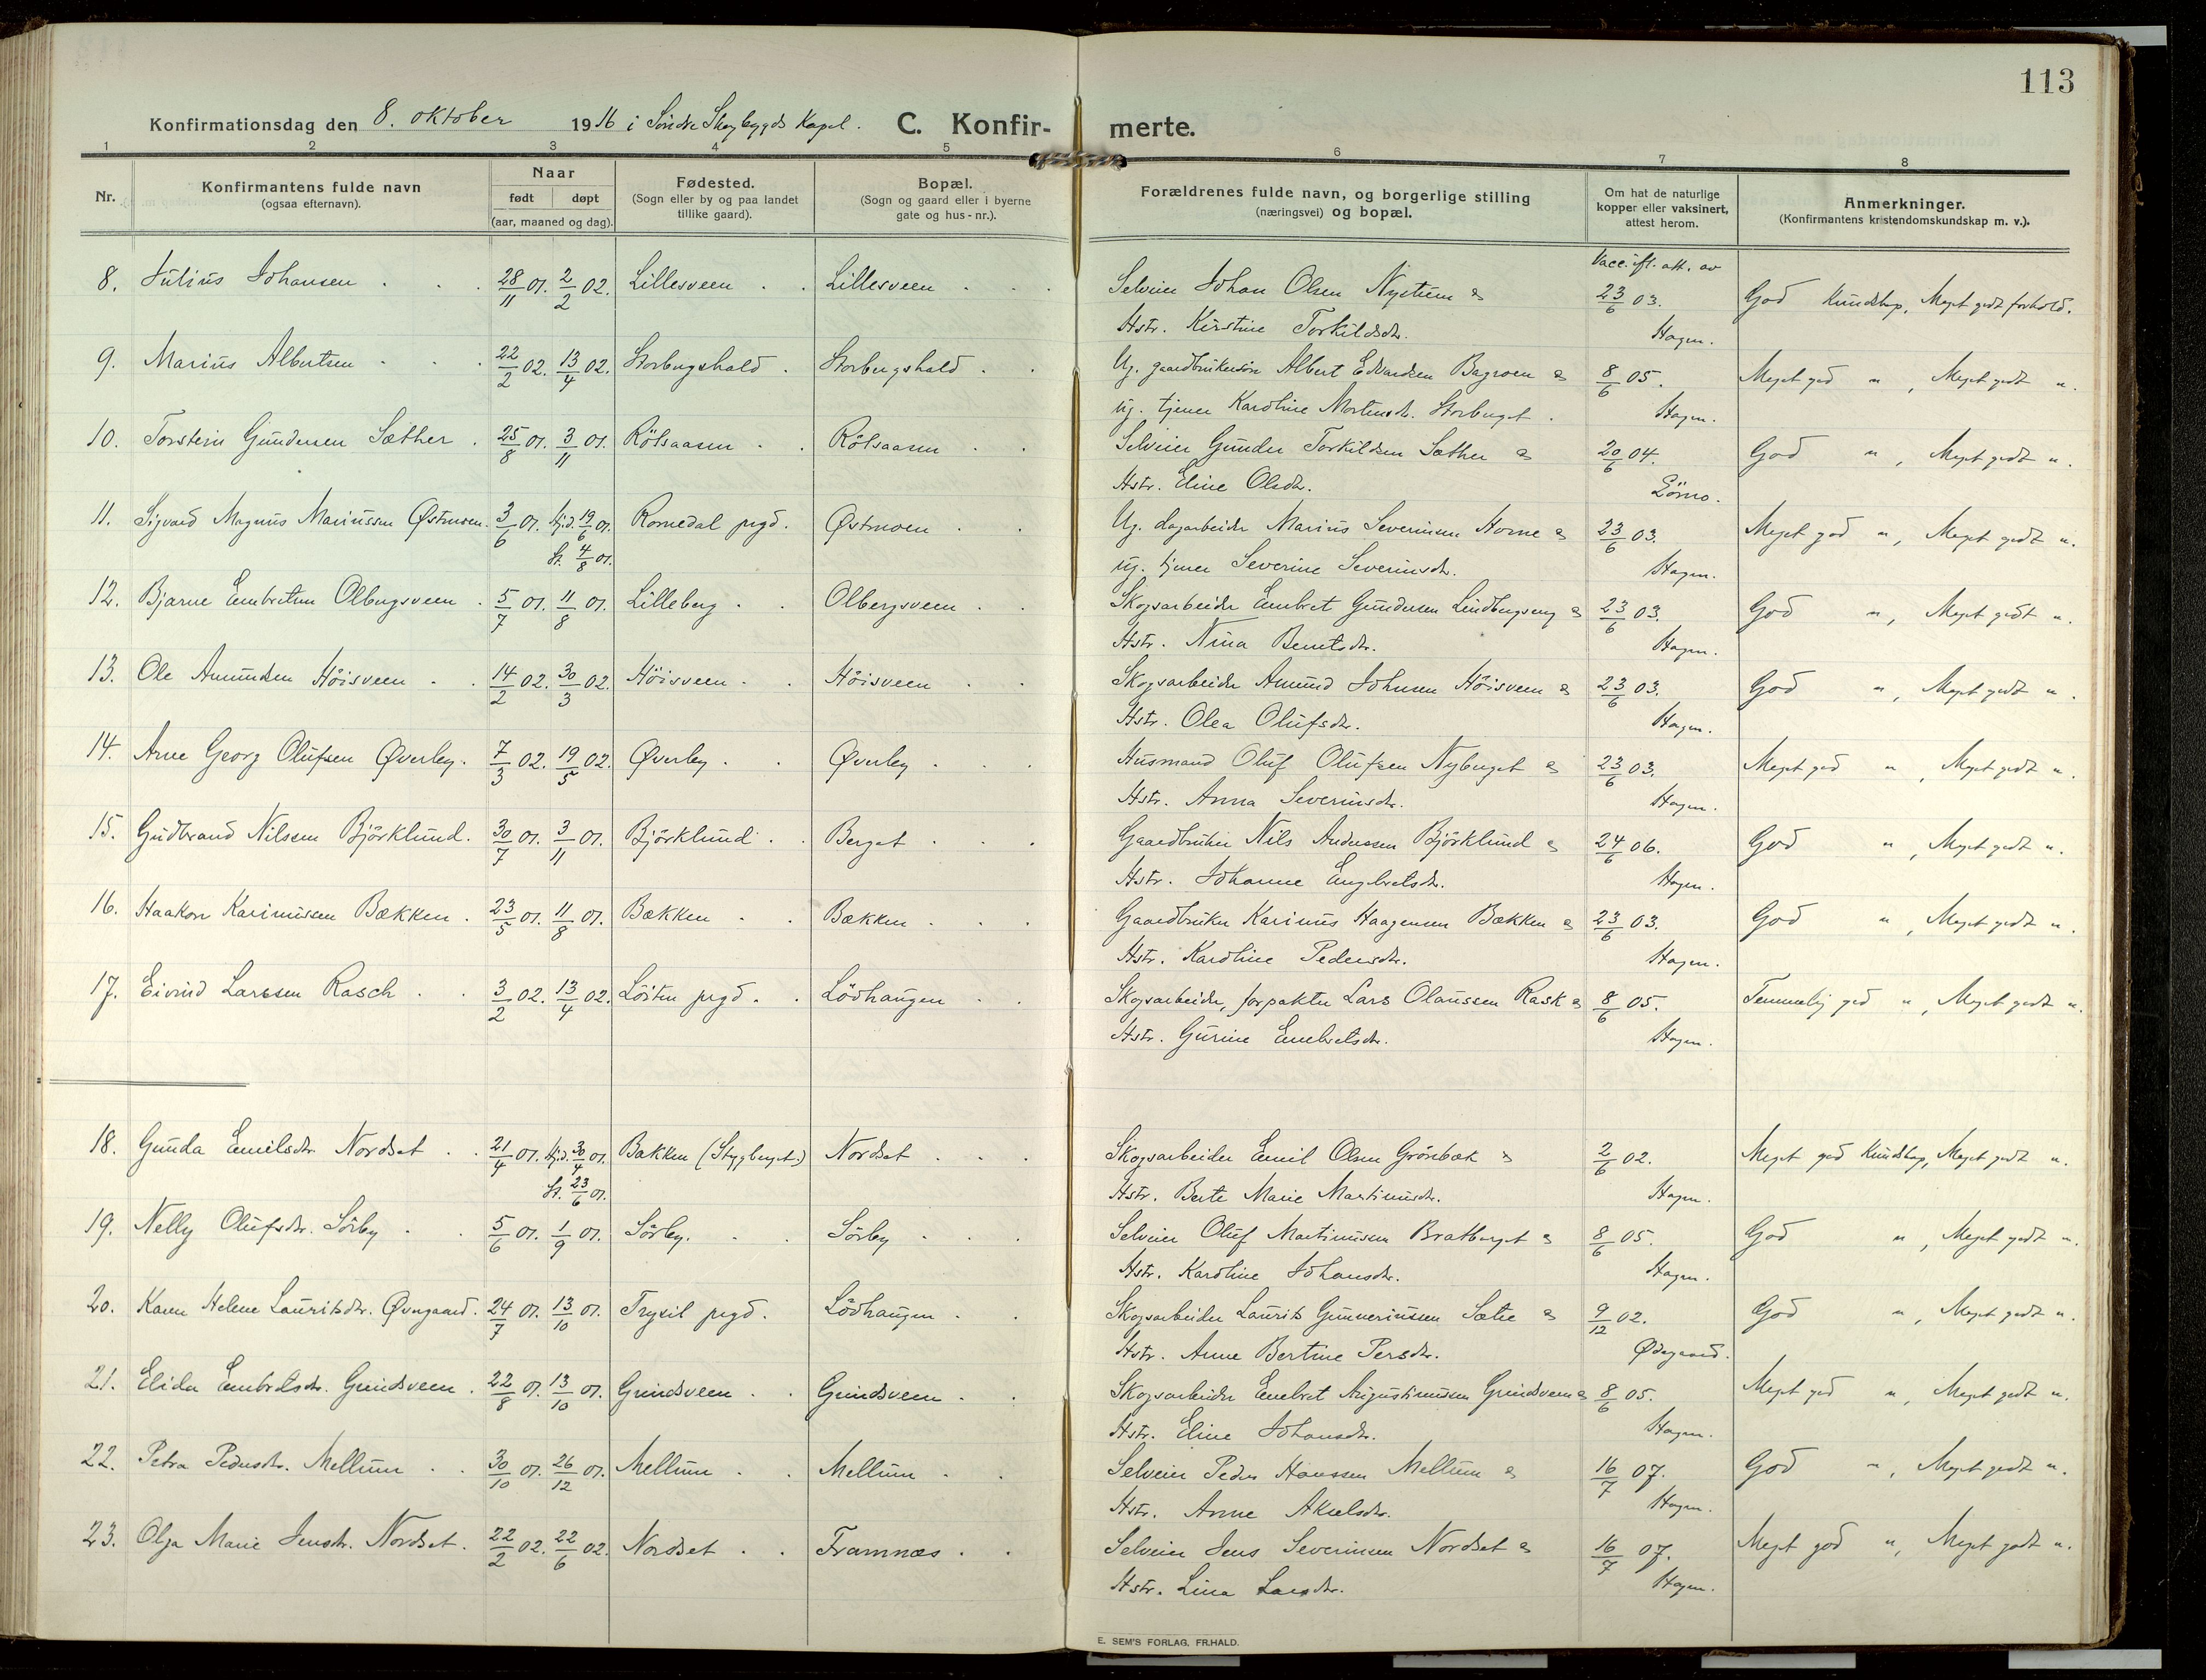 113
Konfirmationsdag den 8. oktober 1916 i Söndre Skogbygds Kapel. C. Konfir- merte.
1 2 3 4 5 6 7 8
Nr. Konfirmantens fulde navn (ogsaa efternavn). Naar født døpt (aar, maaned og dag). Fødested. (Sogn eller by og paa landet tillike gaard). Bopæl. (Sogn og gaard eller i byerne gate og hus-nr.). Forældrenes fulde navn, og borgerlige stilling (næringsvei) og bopæl. Om hat de naturlige kopper eller vaksinert, attest herom. Anmerkninger. (Konfirmantens kristendomskundskap m. v.).
Vacc. ifl. att. av
8. Julius Johansen 28/11 01. 2/2 02. Lillesveen Lillesveen Selveier Johan Olsen Nystuen & 23/6 03. God Kundskap, Meget godt forhold.
Hstr. Kirstine Torkildsdr. Hagen.
9. Marius Albertsen 22/2 02. 13/4 02. Storbergshold Storbergshold Ug. gaardbrukersön Albert Edvardsen Bagroen & 8/6 05. Meget god ", Meget godt ".
ug. tjener Karoline Mortensdr. Storberget. Hagen.
10. Torstein Gundersen Sæther 25/8 01. 3/11 01. Rölsaasen Rölsaasen Selveier Gunder Torkildsen Sæther & 20/6 04. God ", Meget godt ".
Hstr. Eline Olsdr. Lömo.
11. Sigvard Magnus Mariussen Østmoen. 3/6 01. hjd. 19/6 01. Romedal prgd. Østmoen Ug. dagarbeider Marius Severinsen Horne & 23/6 03. Meget god ", Meget godt ".
St. 4/8 01. ug. tjener Severine Severinsdr. Hagen.
12. Bjarne Embretsen Olbergsveen 5/7 01. 11/8 01. Lilleberg Olbergsveen Skogsarbeider Embret Gundersen Lindbergseng & 23/6 03. God ", Meget godt ".
Hstr. Nina Berntsdr. Hagen.
13. Ole Amundsen Höisveen 14/2 02. 30/3 02. Höisveen Höisveen Skogsarbeider Amund Johnsen Höisveen & 23/6 03. God ", Meget godt ".
Hstr. Olea Olufsdr. Hagen.
14. Arne Georg Olufsen Øverby. 7/3 02. 19/5 02. Øverby Øverby Husmand Oluf Olufsen Nyberget & 23/6 03. Meget god ", Meget godt ".
Hstr. Anna Severinsdr. Hagen.
15. Gudbrand Nilssen Björklund. 30/7 01. 3/11 01. Björklund Berget Gaardbruker Nils Anderssen Björklund & 24/6 06. God ", Meget godt ".
Hstr. Johanne Engbretsdr. Hagen.
16. Haakon Karinussen Bækken. 23/5 01. 11/8 01. Bækken Bækken Gaardbruker Karinus Haagensen Bækken & 23/6 03. God ", Meget godt ".
Hstr. Karoline Pedersdr. Hagen.
17. Eivind Larssen Rasch 3/2 02. 13/4 02. Löiten prgd. Lödhaugen Skogsarbeider, forpakter Lars Olaussen Rask & 8/6 05. Temmelig god ", Meget godt ".
Hstr. Gurine Embretsdr. Hagen.
18. Gunda Emilsdr. Nordset 21/4 01. hjd. 30/4 01. Bakken (Stygberget) Nordset Skogsarbeider Emil Olsen Grönbæk & 2/6 02. Meget god Kundskap, Meget godt ".
St. 23/6 01. Hstr. Berte Marie Martinusdr. Hagen.
19. Nelly Olufsdr. Sörby 5/6 01. 1/9 01. Sörby. Sörby Selveier Oluf Martinussen Bratberget & 8/6 05. God ", Meget godt ".
Hstr. Karoline Johansdr. Hagen.
20. Karen Helene Lauritsdr. Øvergaard. 24/7 01. 13/10 01. Trysil prgd. Lödhaugen Skogsarbeider Laurits Gunneriussen Sætre & 9/12 02. God ", Meget godt ".
Hstr. Anne Bertine Persdr. Ødegaard.
21. Elida Embretsdr. Grindsveen 22/8 01. 13/10 01. Grindsveen Grindsveen Skogsarbeider Embret Augustinussen Grindsveen & 8/6 05. Meget god ", Meget godt ".
Hstr. Eline Johansdr. Hagen.
22. Petra Pedersdr. Mellum 30/10 01. 26/12 01. Mellum Mellum Selveier Peder Hanssen Mellum & 16/7 07. God ", Meget godt ".
Hstr. Anne Akselsdr. Hagen.
23. Olga Marie Jensdr. Nordset. 22/2 02. 22/6 02. Nordset Framnæs Selveier Jens Severinsen Nordset & 16/7 07. Meget god ", Meget godt ".
Hstr. Lina Larsdr. Hagen.
E. SEM'S FORLAG, FR.HALD.